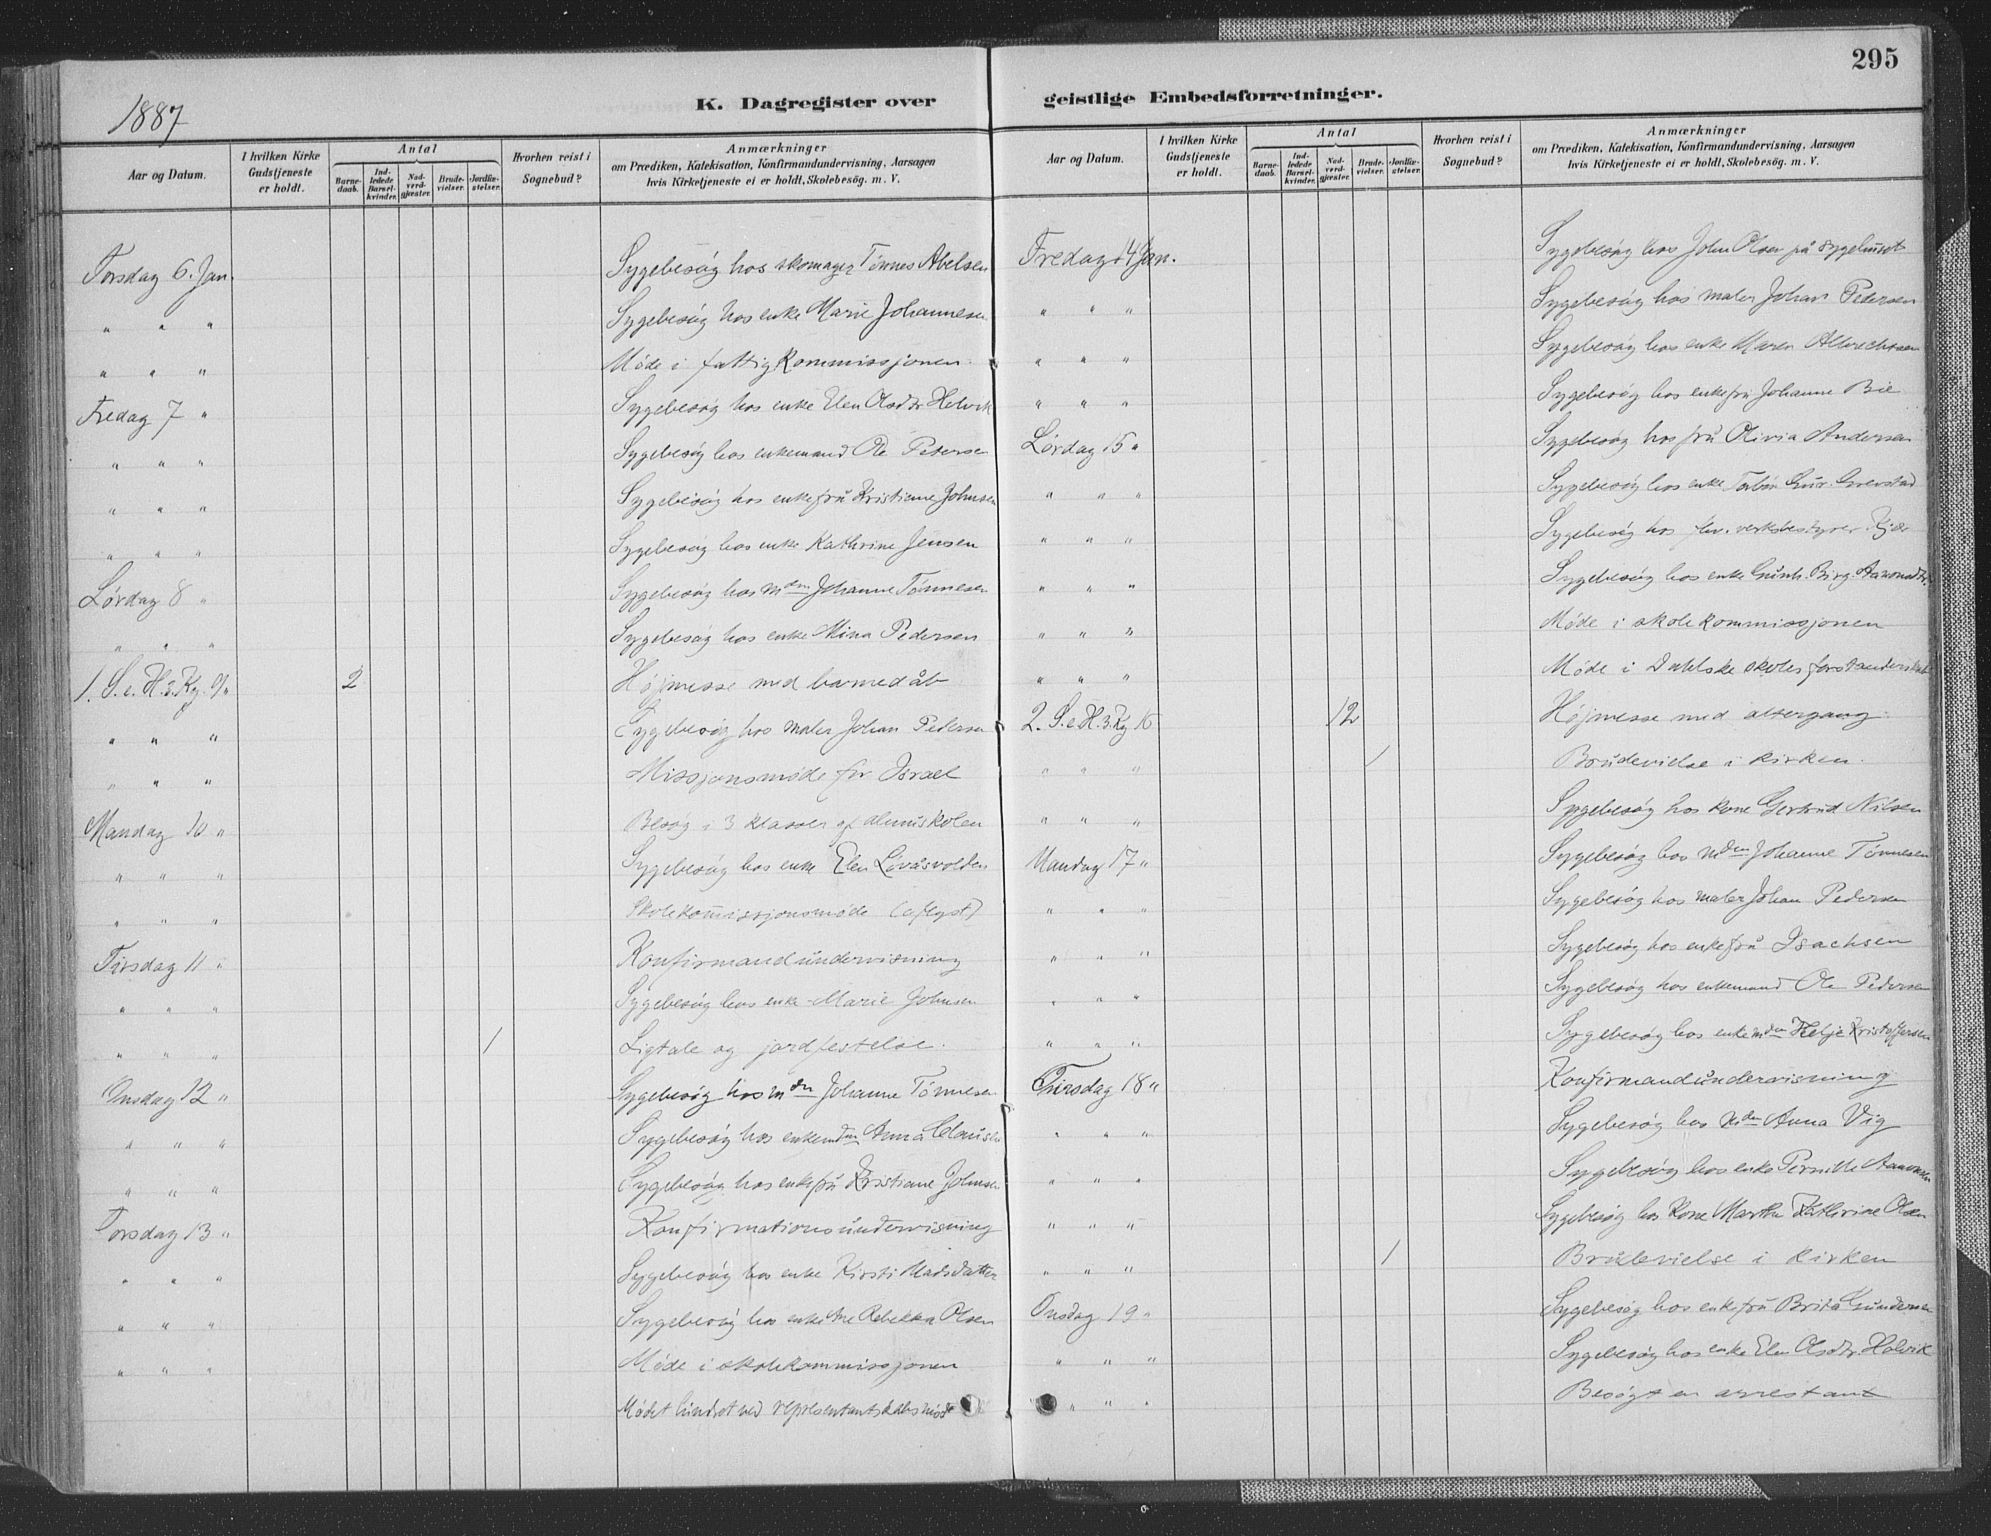 295
1887
K. Dagregister over geistlige Embedsforretninger.
Aar og Datum. I hvilken Kirke Gudstjeneste er holdt. Antal Barnedaab. Indledede Barselkvinder. Nadverdgjæster. Brudevielser. Jordfæstelser. Hvorhen reist i Sognebud? Anmærkninger om Prædiken, Katekisation, Konfirmandundervisning, Aarsagen hvis Kirketjeneste ei er holdt, Skolebesøg. m. V.
Torsdag 6. Jan. Sygebesøg hos skomager Tønnes Abelsen
" " " Sygebesøg hos enke Marie Johannesen
" " " Møde i fattigkommissjonen.
Fredag 7 " Sygebesøg hos enke Elen Olsdtr Holvik
" " " Sygebesøg hos enkemand Ole Petersen
" " " Sygebesøg hos enkefru Kristiane Johnsen
" " " Sygebesøg hos enke Kathrine Jensen
Lørdag 8 " Sygebesøg hos mdm Johanne Tønnesen
" " " Sygebesøg hos enke Mina Pedersen
1. S. e. H. 3. Kg. 9 " 2 Højmesse med barnedåb
" " " Sygebesøg hos maler Johan Pedersen
" " " Missjonsmøde for Israel
Mandag 10 " Besøg i 3 klasser af almuskolen
" " " Sygebesøg hos enke Elen
" " " Skolekommissjonsmøde (aflyst)
Tirsdag 11 " Konfirmandundervisning
" " " Sygebesøg hos enke Marie Johnsen
" " " 1 Ligtale og jordfestelse.
Onsdag 12 " Sygebesøg hos mdm Johanne Tønnesen
" " " Sygebesøg hos enkemdm Anna Clausen
" " " Sygebesøg hos enkefru Kristiane Johnsen
Torsdag 13 " Konfirmationsundervisning
" " " Sygebesøg hos enke Kirsti Madsdatter
" " " Sygebesøg hos enke Ane Rebekka Olsen
" " " Møde i skolekommissjonen
Mødet hindret ved representantskabsmøde
Aar og Datum. I hvilken Kirke Gudstjeneste er holdt. Antal Barnedaab. Indledede Barselkvinder. Nadverdgjæster. Brudevielser. Jordfæstelser. Hvorhen reist i Sognebud? Anmærkninger om Prædiken, Katekisation, Konfirmandundervisning, Aarsagen hvis Kirketjeneste ei er holdt, Skolebesøg. m. V.
Fredag 14 Jan. Sygebesøg hos John Olsen på sygehuset
" " " Sygebesøg hos maler Johan Pedersen
" " " Sygebesøg hos enke Maren Albrechtsen
" " " Sygebesøg hos enkefru Johanne Bie
Lørdag 15 " Sygebesøg hos fru Olivia Andersen
" " " Sygebesøg hos enke
" " " Sygebesøg hos fhv. verksbestyrer
" " " Sygebesøg hos enke Gunh. Birg. Aanonsdtr.
" " " Møde i skolekommissjonen
" " " Møde i Dahlske skoles forstanderskab
2. S. e. H. 3. Kg 16 12 Højmesse med altergang.
" " " 1 Brudevielse i kirken.
" " " Sygebesøg hos kone Gertrud Nilsen
Mandag 17 " Sygebesøg hos mdm Johanne Tønnesen
" " " Sygebesøg hos maler Johan Pedersen
" " " Sygebesøg hos enkefru Isachsen
" " " Sygebesøg hos enkemand Ole Pedersen
" " " Sygebesøg hos enkemdm Helje Kristoffersen
Tirsdag 18 " Konfirmandundervisning
" " " Sygebesøg hos mdm Anna Vig
" " " Sygebesøg hos enke Pernille Aanonsen
" " " Sygebesøg hos kone Marthe Kathrine Olsen
" " " 1 Brudevielse i kirken
Onsdag 19 " Sygebesøg hos enkefru Brita Gundersen
" " " Sygebesøg hos enke Elen Olsdtr. Holvik
" " " Besøgt en arrestant